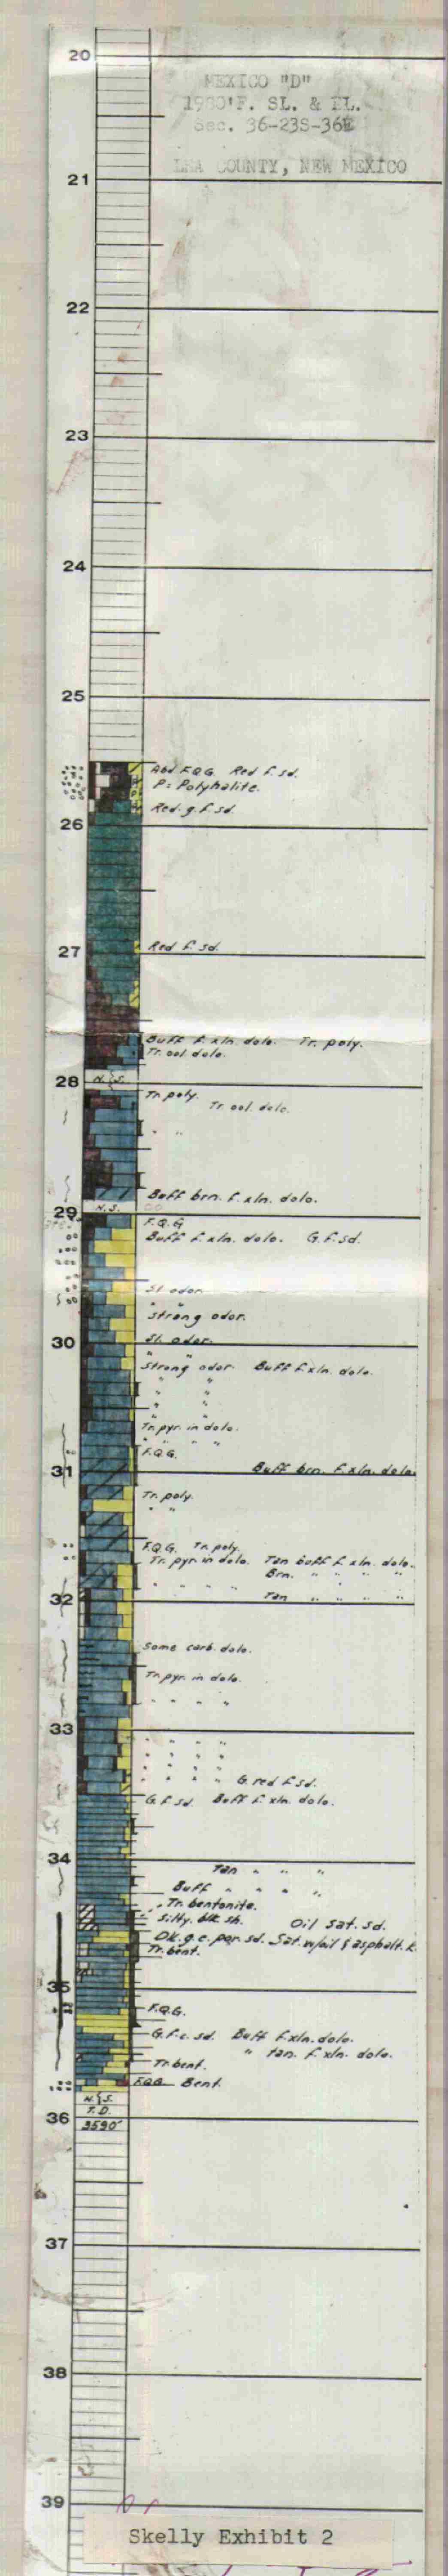 20
MEXICO "D"
1980'F. SL. & EL.
Sec. 36-23S-36E
LEA COUNTY, NEW MEXICO
21
22
23
24
25
Abd F.Q.G. Red f. sd.
P = Polyhalite.
Red-g f. sd.
26
27
Red f. sd.
Buff f. xln. dolo. Tr. poly.
Tr. ool. dolo.
28
N. S.
Tr. poly.
Tr. ool. dolo.
" "
Buff brn. f. xln. dolo.
29
N. S.
F.Q.G
Buff f. xln. dolo. G. f. sd.
Sl. odor.
" "
Strong odor.
30
Sl. odor.
" "
Strong odor. Buff f. xln. dolo.
" "
" "
" "
Tr. pyr. in dolo.
" " " "
F.Q.G.
31
Buff brn. f. xln. dolo.
Tr. poly.
" "
F.Q.G. Tr. poly.
Tr. pyr. in dolo. Tan buff f. xln. dolo.
Brn. " " " "
" " " "
32
Tan " " "
Some carb. dolo.
Tr. pyr. in dolo.
" " " "
33
" " " "
" " " "
" " " "
" " " " G. red f. sd.
G. f. sd. Buff f. xln. dolo.
34
Tan " " "
Buff " " " "
" Tr. bentonite.
Silty. blk. sh. Oil Sat. sd.
Dk. g. c. por. sd. Sat. w/oil & asphalt. k.
Tr. bent.
35
F.Q.G.
G. f-c. sd. Buff f. xln. dolo.
" tan. f. xln. dolo.
Tr. bent.
F.Q.G. Bent.
N. S.
T. D.
36
3590'
37
38
39
Skelly Exhibit 2